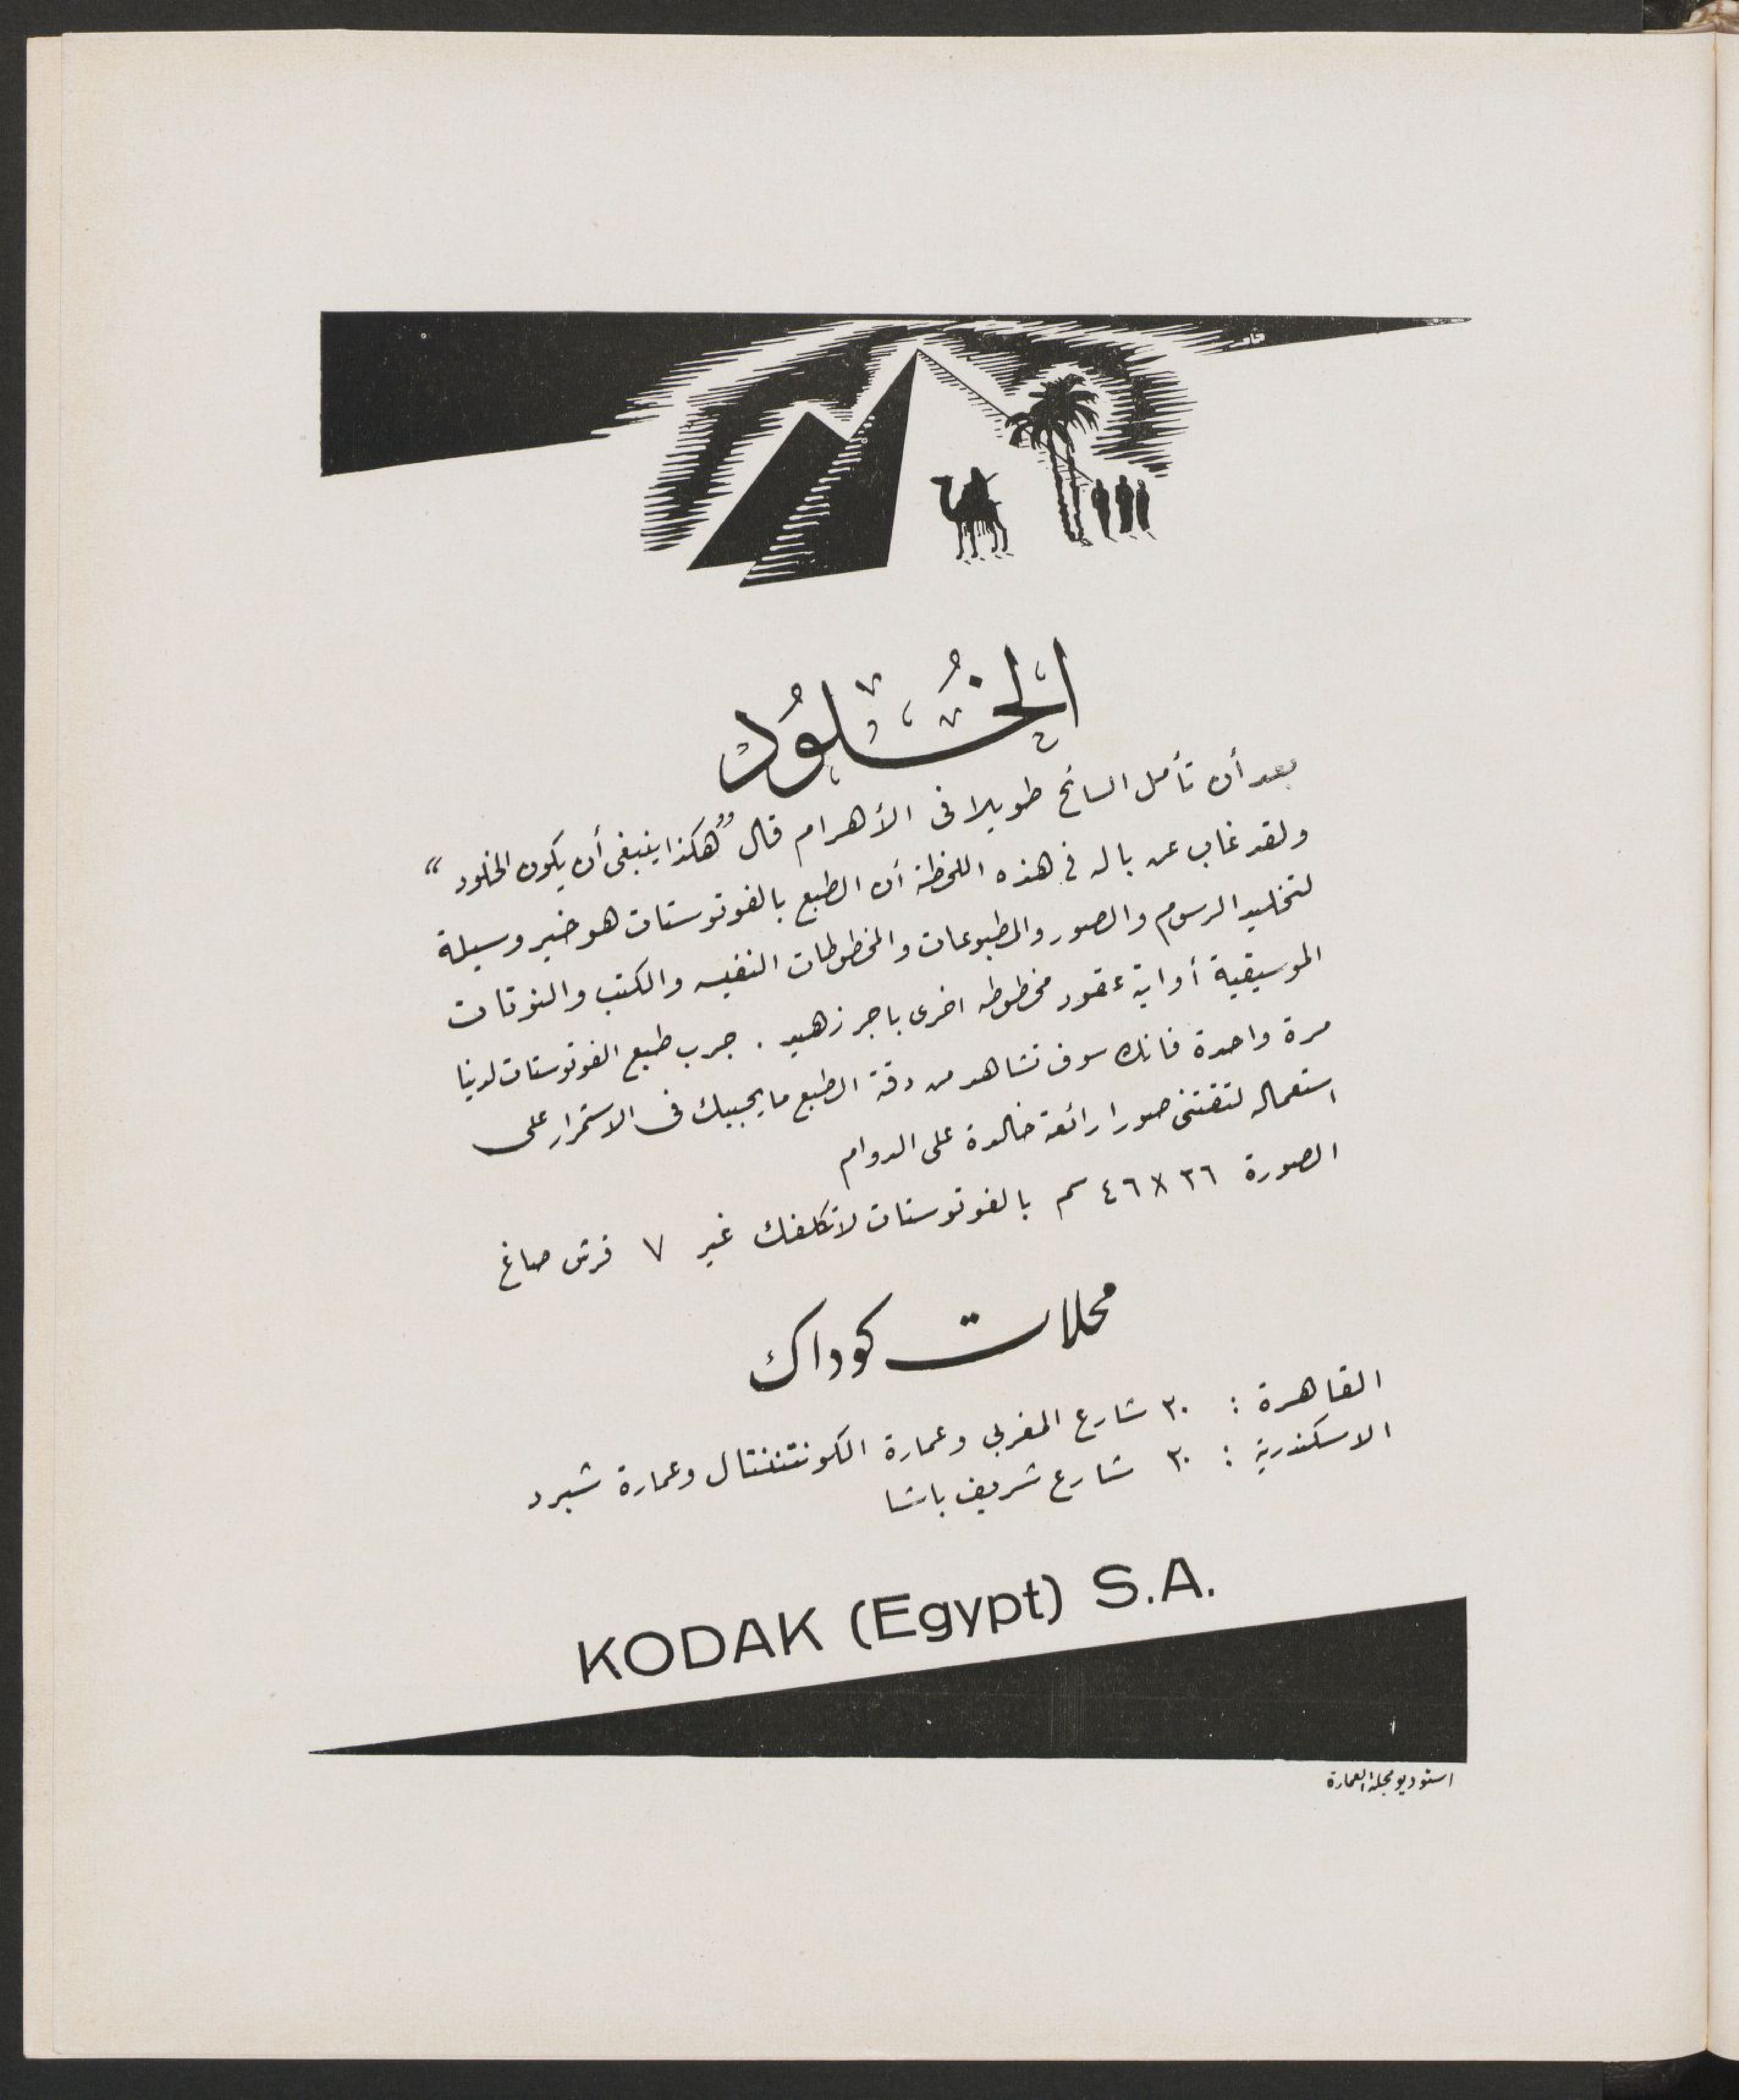 الخُلُود
بعد أن تأمل السائح طويلا فى الأهرام قال "هكذا ينبغى أن يكون الخلود"
ولقد غاب عن باله فى هذه اللحظة أن الطبع بالفوتوستات هو خير وسيلة
لتخليد الرسوم والصور والمطبوعات والمخطوطات النفيسه والكتب والنوتات
الموسيقية أو اية عقود مخطوطه اخرى باجر زهيد . جرب طبع الفوتوستات لدينا
مرة واحدة فانك سوف تشاهد من دقة الطبع ما يجببك فى الاستمرار على
استعماله لتقتنى صورا رائعة خالدة على الدوام
الصورة ٣٦ × ٤٦ سم بالفوتوستات لا تكلفك غير ٧ قرش صاغ
محلات كوداك
القاهرة : ٢٠ شارع المغربى وعمارة الكونتننتال وعمارة شبرد
الاسكندرية : ٣٠ شارع شريف باشا
KODAK (Egypt) S.A.
استوديو مجلة العمارة